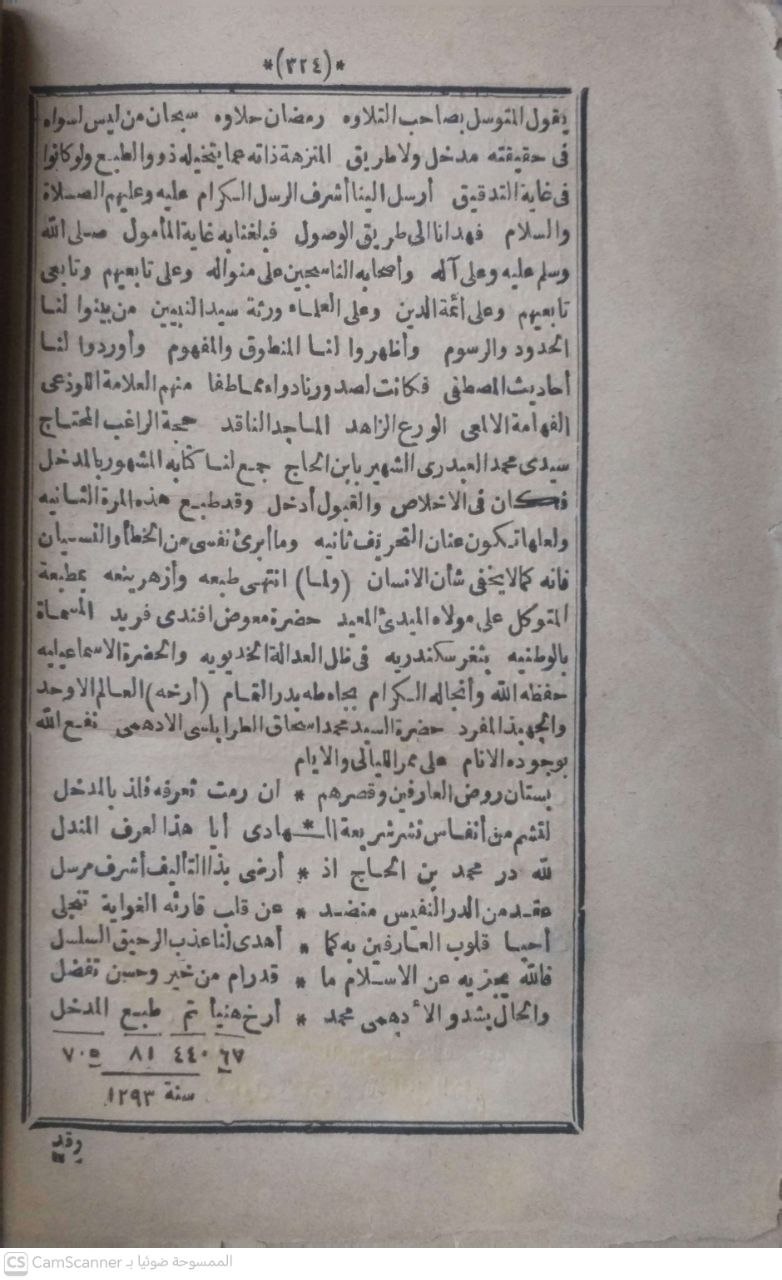 *(٣٢٤)*
يقول المتوسل بصاحب التلاوه رمضان حلاوه سبحان من ليس لسواه
فى حقيقته مدخل ولا طريق المنزهة ذاته عما يتخيله ذوو الطبع ولو كانوا
فى غاية التدقيق أرسل الينا أشرف الرسل الكرام عليه وعليهم الصلاة
والسلام فهدانا الى طريق الوصول فبلغنا به غاية المأمول صلى الله
وسلم عليه وعلى آله وأصحابه الناسجين على منواله وعلى تابعيهم وتابعى
تابعيهم وعلى أئمة الدين وعلى العلماء ورثة سيد النبيين من بينوا لنا
الحدود والرسوم وأظهروا لنا المنطوق والمفهوم وأوردوا لنا
أحاديث المصطفى فكانت لصدورنا دواء مما طفا منهم العلامة اللوذعى
الفهامة الالمعى الورع الزاهد الماجد الناقد حجة الراغب المحتاج
سيدى محمد العبدرى الشهير بابن الحاج جمع لنا كتابه المشهور بالمدخل
فكان فى الاخلاص والقبول أدخل وقد طبع هذه المرة الثانيه
ولعلها تكون عنان التحريف ثانيه وما أبرئ نفسى من الخطأ والنسيان
فانه كما لا يخفى شأن الانسان (ولما) انتهى طبعه وأزهر ينعه بمطبعة
المتوكل على مولاه المبدئ المعيد حضرة معوض افندى فريد المسماة
بالوطنيه بثغر سكندريه فى ظل العدالة الخديويه والحضرة الاسماعيليه
حفظه الله وأنجاله الكرام بجاه طه بدر التمام (أرخه) العالم الاوحد
والجهبذ المفرد حضرة السيد محمد اسحاق الطرابلسى الادهمى نفع الله
بوجوده الانام على ممر الليالى والايام
بستان روض العارفين وقصرهم * ان رمت تعرفه فلذ بالمدخل
لتشم من أنفاس نشر شريعة ال * هادى أيا هذا لعرف المندل
لله در محمد بن الحاج اذ * أرضى بذا التأليف أشرف مرسل
عقد من الدر النفيس منضد * عن قلب قارئه الغواية تنجلى
أحيا قلوب العارفين به كما * أهدى لنا عذب الرحيق السلسل
فالله يجزيه عن الاسلام ما * قد رام من خير وحسن تفضل
والحال يشدو الأدهمى محمد * أرخ هنيأ تم طبع المدخل
٦٧ ٤٤٠ ٨١ ٧٠٥
سنة ١٢٩٣
وقد
CS CamScanner الممسوحة ضوئيا بـ